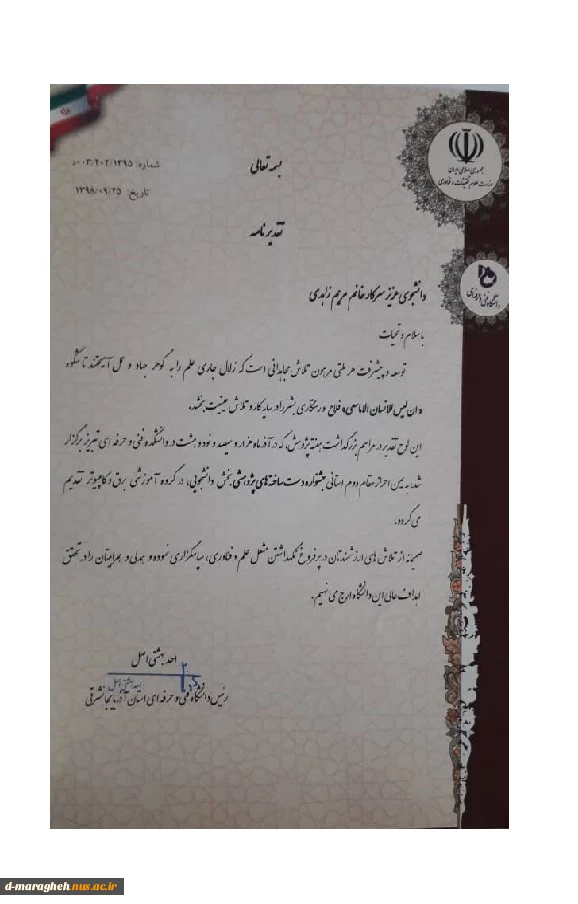 جمهوری اسلامی ایران
وزارت علوم تحقیقات و فناوری
دانشگاه فنی و حرفه‌ای
بسمه تعالی
شماره: ۵۰۰۳/۲۰۲/۱۳۹۵
تاریخ: ۱۳۹۸/۰۹/۲۵
تقدیرنامه
دانشجوی عزیز سرکار خانم مریم زاهدی
با سلام و تحیات
توسعه و پیشرفت هر ملتی مرهون تلاش مجاهدانی است که زلال جاری علم را به گوهر جهاد و عمل آمیختند تا شکوه
«ان لیس للانسان الا ماسعی» فلاح و رستگاری بشر را در سایه کار و تلاش عینیت بخشد.
این لوح تقدیر در مراسم بزرگداشت هفته پژوهش، که در آذر ماه هزار و سیصد و نود و هشت در دانشکده فنی و حرفه ای تبریز برگزار
شد، به یمن احراز مقام دوم استانی جشنواره دست ساخته های پژوهشی بخش دانشجویی، در گروه آموزشی برق و کامپیوتر تقدیم
می گردد.
صمیمانه از تلاش های ارزشمندتان در پرفروغ نگهداشتن مشعل علم و فناوری، سپاسگزاری نموده و همدلی و همراهیتان را در تحقق
اهداف عالی این دانشگاه ارج می نهیم.
احد بهشتی اصل
رئیس دانشگاه فنی و حرفه ای استان آذربایجانشرقی
d-maragheh.nus.ac.ir